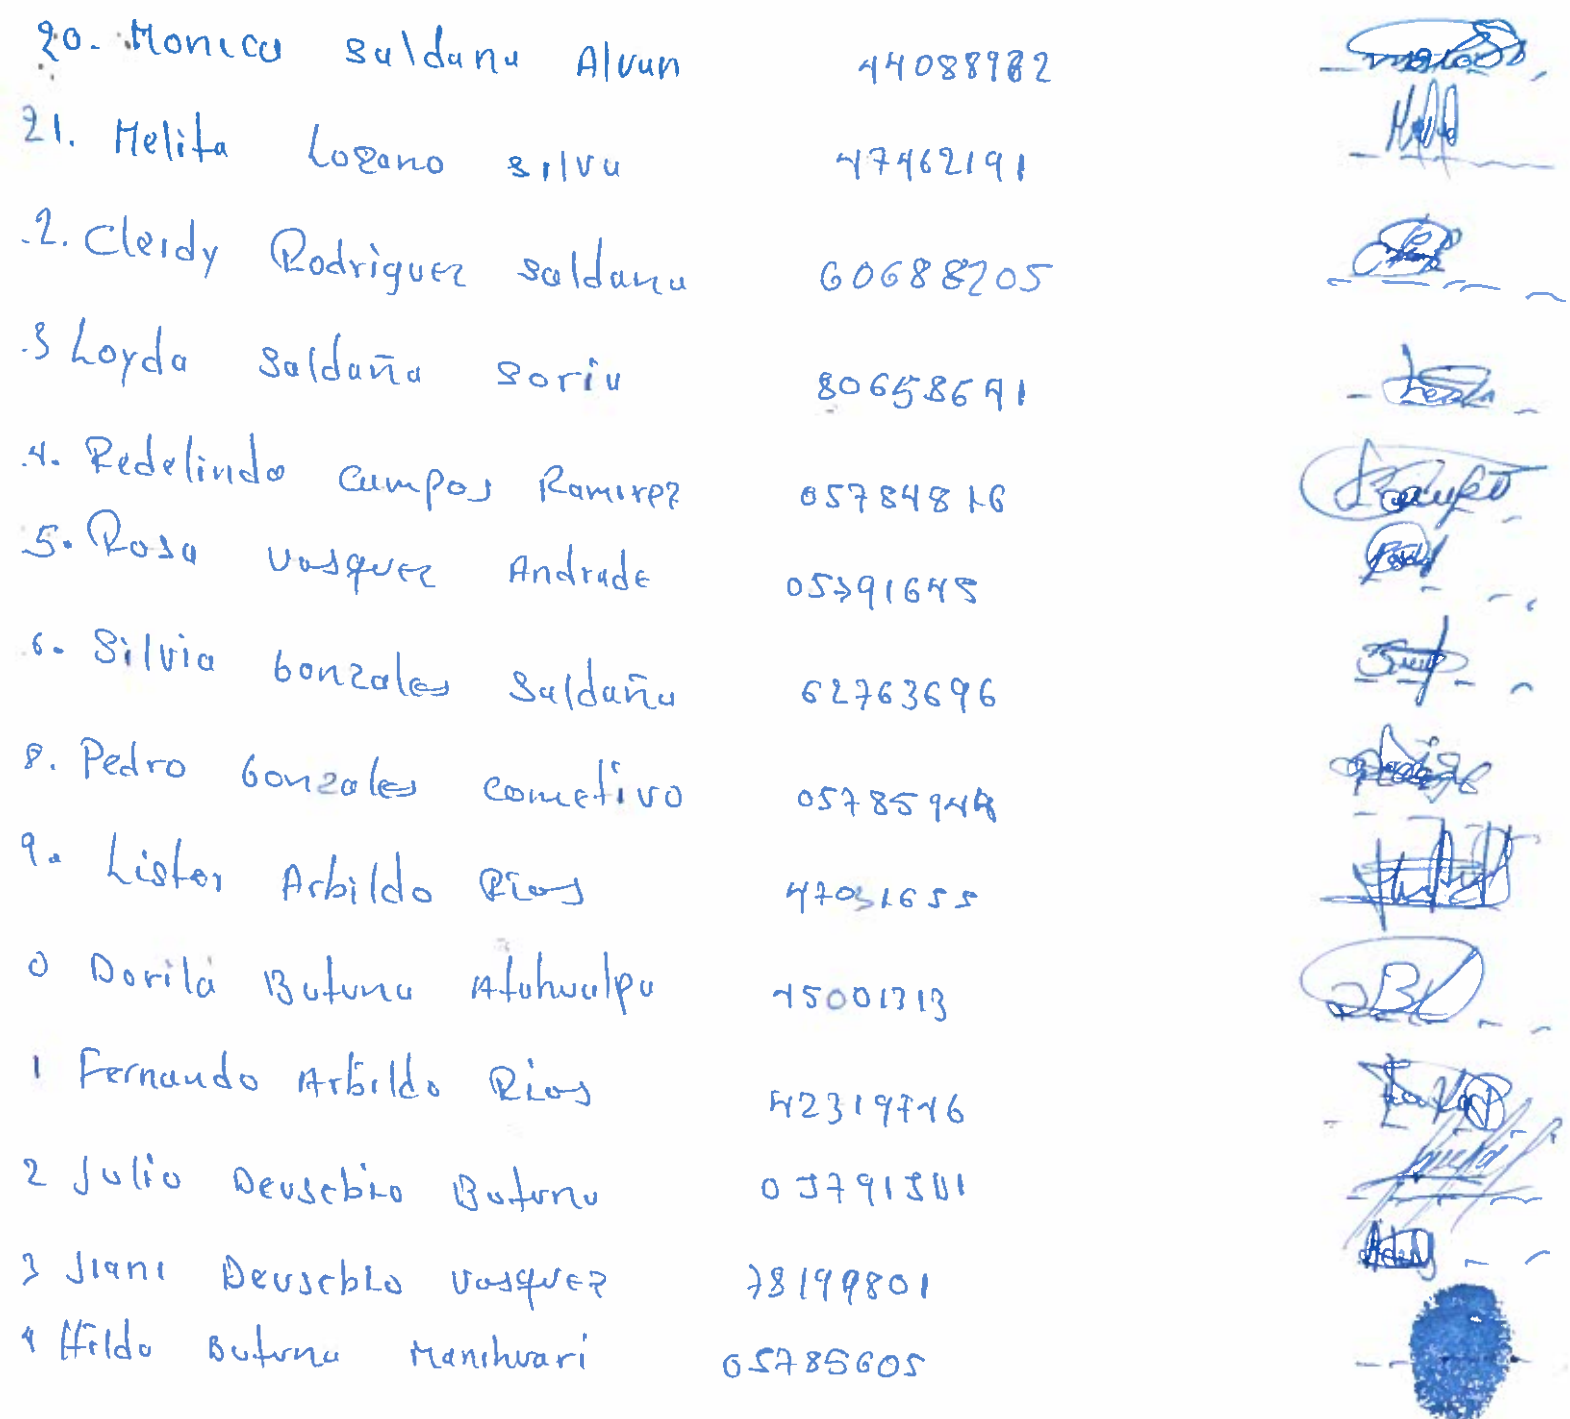 20. Monica Saldana Alvan 44088982
21. Melita Lozano Silva 47462191
.2. Cleidy Rodriguez Saldana 60688205
.3 Loyda Saldaña Soria 80658641
.4. Redelindo Campos Ramirez 05784816
5. Rosa Vasquez Andrade 05791645
6. Silvia Gonzales Saldaña 62763696
8. Pedro Gonzales Cometivo 05785944
9. Lister Arbildo Rios 47031655
0 Dorila Butuna Atahualpa 45001313
1 Fernando Arbildo Rios 42319746
2 Julio Deusebio Butuna
3 Jiani Deusebio Vasquez 78199801
4 Hilda Butuna Manihuari 05785605